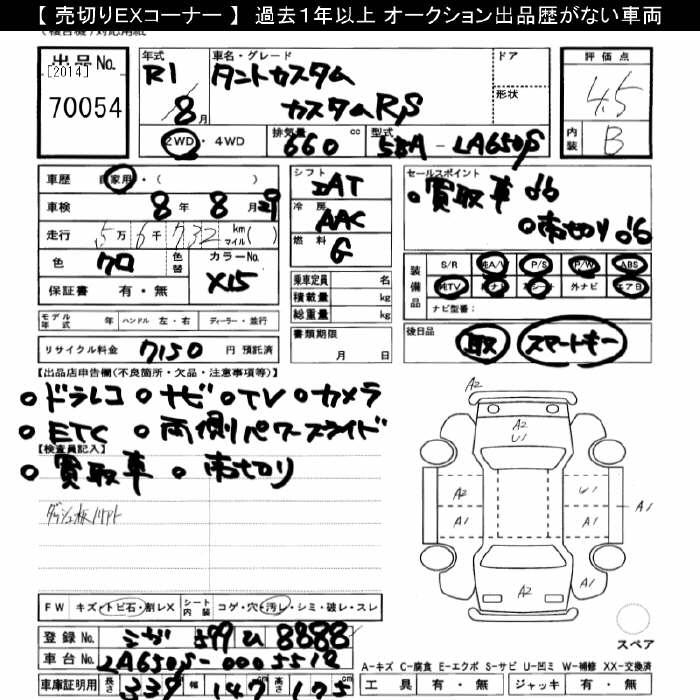 【 売切りEXコーナー 】 過去1年以上 オークション出品歴がない車両
出品No.
[2014]
70054
年式
R1
8月
車名・グレード
タントカスタム
カスタムRS
ドア
形状
評価点
4.5
内装
B
2WD・4WD
排気量 660 cc
型式 5BA - LA650S
車歴 自家用・( )
車検 8年8月29
走行 5万6千732 km マイル( )
色 クロ 色替 カラーNo. X15
保証書 有・無
シフト DAT
冷房 AAC
燃料 G
乗車定員 名
積載量 kg
総重量 kg
書類期限
月 日
セールスポイント
○買取車
○売切り
装備品
S/R 純A/W P/S P/W ABS
純TV 純ナビ 革シート 外ナビ エアB
ナビ型番:
モデル年式 年 ハンドル 左・右 ディーラー・並行
リサイクル料金 7150 円 預託済
後日品
取 スマートキー
【出品店申告欄(不良箇所・欠品・注意事項等)】
○ドラレコ ○ナビ ○TV ○カメラ
○ETC ○両側パワースライド
【検査員記入】
○買取車 ○売切り
A2
A2
U1
A2
U1
A1
A1
A1
A2
A1
スペア
FW キズ・トビ石・割レX シート内装 コゲ・穴・汚レ・シミ・破レ・スレ
登録No. 599 ひ 8888
車台No. LA650S-0005512
車庫証明用 長さ 339 幅 147 高さ 175
A-キズ C-腐食 E-エクボ S-サビ U-凹ミ W-補修 XX-交換済
工具 有・無 ジャッキ 有・無